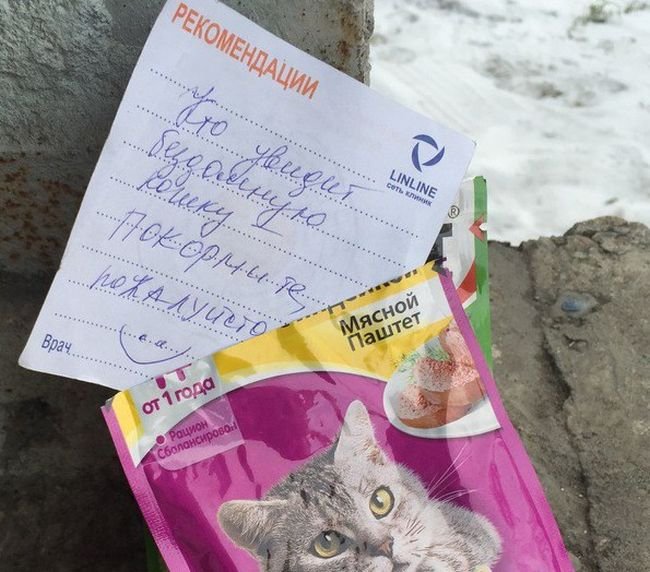 РЕКОМЕНДАЦИИ
Кто увидит
бездомную
кошку –
Покормите,
пожалуйсто
Врач
LINLINE
сеть клиник
®
Мясной
Паштет
от 1 года
Рацион
Сбалансирован